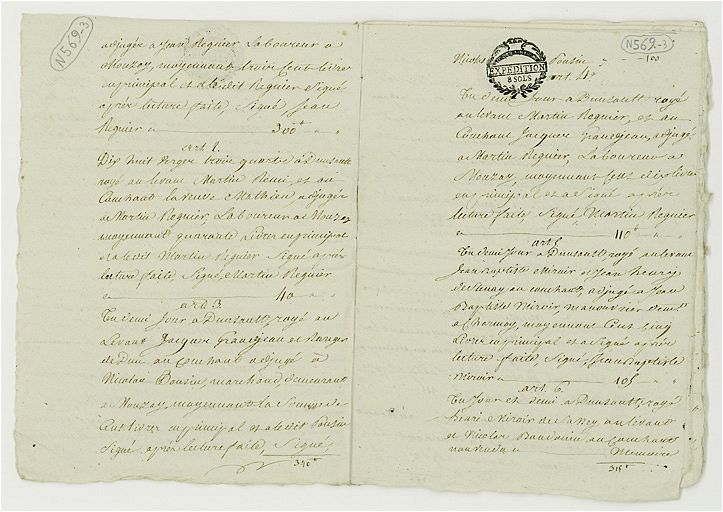 N569-3
adjugée à Jean Regnier Laboureur a
Mouzay, moyennant trois cent livres
en principal et a ledit Regnier Signé
après lecture faite, Signé, Jean
Regnier 300# " "
art 2.
Dix huit verges trois quarts à Dunsault
royé au levant Martin Remi, et au
Couchant la veuve Mathieu adjugée
a Martin Regnier, Laboureur a Mouzay
moyennant quarante Livres en principal
et a ledit Martin Regnier Signé après
Lecture faite, Signé, Martin Regnier
a 40 " "
art 3.
Un demi Jour a Dunsault, royé au
Levant Jacques Grandjean et
de Dun au Couchant adjugé à
Nicolas Poussin, marchand demeurant
a Mouzay, moyennant la Somme de
Cent livres en principal et a ledit Poussin
Signé, après lecture faite, Signé,
340#
N569-3
100
Nicolas Poussin
EXPEDITION
8 SOLS
art 4.
Un demi Jour a Dunsault royé
au levant Martin Regnier, et au
Couchant Jacques Grandjean, adjugé
a Martin Regnier, Laboureur a
Mouzay, moyennant Cent dix livres
en principal et a Signé après
lecture faite Signé Martin Regnier
a 110# " "
art 5
Un demi Jour a Dunsault royé au levant
Jean Baptiste Miroir et Jean Henry
de Stenay, au couchant, adjugé a Jean
Baptiste Miroir, manouvrier dem.t
a Charmoy, moyennant Cent cinq
Livres en principal et a Signé après
lecture faite, Signé, Jean Baptiste
Miroir a 105 "
art 6.
Un Jour et demi a Dunsault, royé
Henri Miroir de au levant
et Nicolas Baudouin au Couchant
non vendu a Memoire
315#